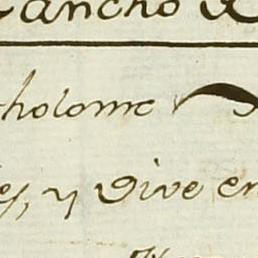 Sancho R
tholome
es, y Vive en